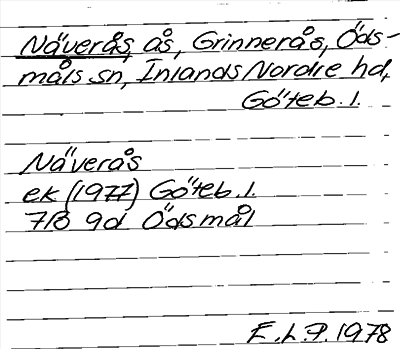 Näverås, ås, Grinnerås, Öds-
måls sn, Inlands Nordre hd,
Göteb. l.
Näverås
ek (1977) Göteb. l.
7B 9d Ödsmål
E.L.P. 1978